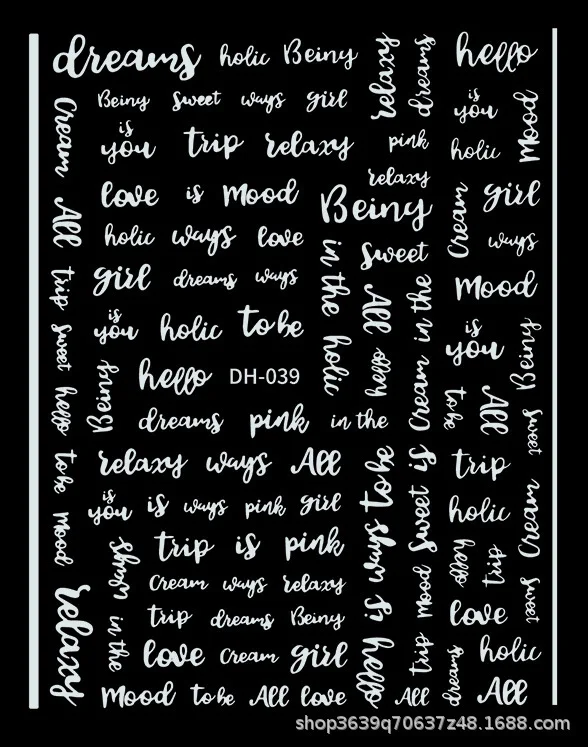 dreams holic Being relaxy dreams hello
Being sweet ways girl is you Mood
Cream is you trip relaxy pink holic
relaxy
love is Mood Being Cream girl
All holic ways love in the Sweet ways
girl dreams ways All in the Mood
trip is you holic to be is you Being
sweet hello DH-039 holic hello Cream to be All
hello Being dreams pink in the sweet
relaxy ways All to be is trip
to be is you is ways pink girl ways Sweet holic Cream
Mood ways trip is pink is Mood hello trip
Cream ways relaxy love sweet
relaxy in the trip dreams Being
love Cream girl hello trip dreams holic
Mood to be All love All All
shop3639q70637z48.1688.com